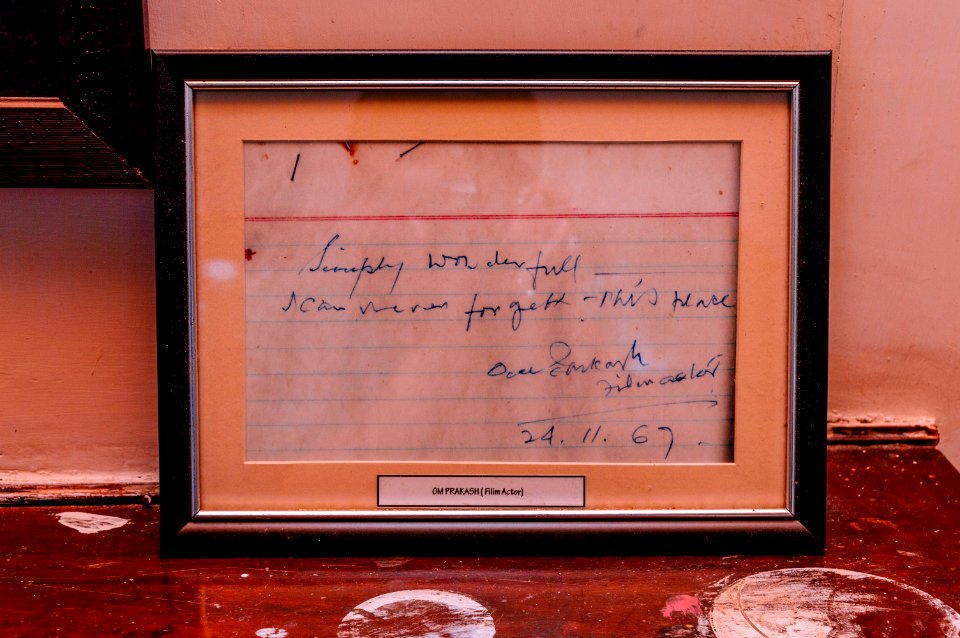 Simply wonderfull
I can never forgett this place
Om Parkash
Film actor
24. 11. 67
OM PRAKASH (Filim Actor)